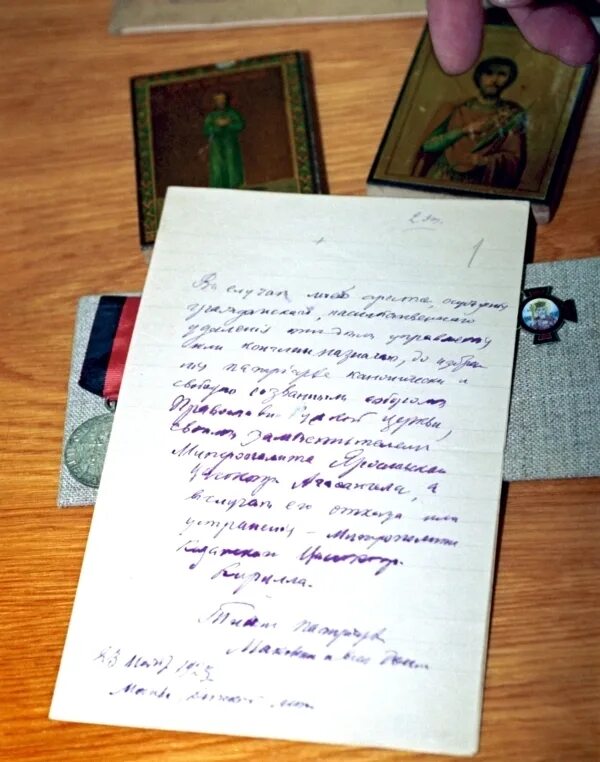 2 эк.
1
В случае моего ареста, осуждения
гражданского, насильственного
удаления от дел управления
или кончины назначаю, до избра
ния патриарха канонически и
свободно созванным собором
Православн Русской церкви,
своими заместителями
Митрополита Ярославск
Агафангела, а
в случае его отказа или
устранения – Митрополита
Казанского
Кирилла.
Тихон патриарх
Москвы и всея
23
Москва Донской мон